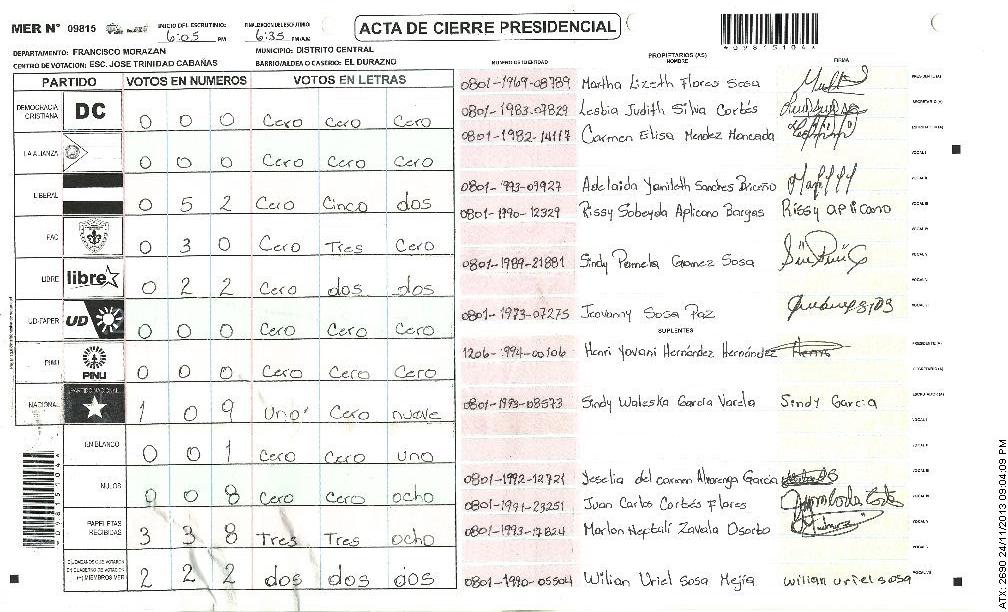 MER N° 09815 INICIO DEL ESCRUTINIO: 6:05 PM FINALIZACION DEL ESCRUTINIO: 6:35 PM
ACTA DE CIERRE PRESIDENCIAL
*09815104*
DEPARTAMENTO: FRANCISCO MORAZAN MUNICIPIO: DISTRITO CENTRAL
CENTRO DE VOTACION: ESC. JOSE TRINIDAD CABAÑAS BARRIO/ALDEA O CASERIO: EL DURAZNO
PARTIDO VOTOS EN NUMEROS VOTOS EN LETRAS
DEMOCRACIA CRISTIANA DC 0 0 0 Cero Cero Cero
LA ALIANZA 0 0 0 Cero Cero Cero
LIBERAL 0 5 2 Cero Cinco dos
FAC 0 3 0 Cero Tres Cero
LIBRE libre 0 2 2 Cero dos dos
UD-FAPER UD 0 0 0 Cero Cero Cero
PINU PINU 0 0 0 Cero Cero Cero
NACIONAL PARTIDO NACIONAL 1 0 9 Uno Cero nueve
EN BLANCO 0 0 1 Cero Cero uno
NULOS 0 0 8 Cero Cero ocho
PAPELETAS RECIBIDAS 3 3 8 Tres Tres ocho
MIEMBROS MER 2 2 2 dos dos dos
NUMERO DE IDENTIDAD PROPIETARIOS (AS) NOMBRE FIRMA
0801-1969-08789 Martha Lizeth Flores Sosa PRESIDENTE(A)
0801-1983-07829 Lesbia Judith Silva Cortés SECRETARIO(A)
0801-1982-14117 Carmen Elisa Mendez Honcada ESCRUTADOR(A)
VOCAL I
Adelaida Yanileth Sanches VOCAL II
0801-1990-12329 Rissy Sobeyda Aplicano Bargas Rissy aplicano VOCAL III
VOCAL IV
0801-1989-21881 Sindy Pamela Gomez Sosa VOCAL V
0801-1973-07275 Jeovanny Sosa Paz
SUPLENTES
Henri Yovani Hernández Hernández PRESIDENTE(A)
SECRETARIO(A)
0801-1993-08573 Sindy Waleska García Varela Sindy Garcia ESCRUTADOR(A)
VOCAL I
VOCAL II
0801-1992-12721 Yeselia del carmen Alvorenga García VOCAL III
0801-1991-23251 Juan Carlos Cortés Flores VOCAL IV
0801-1993-17824 Marlon Heptali Zavala Osorto VOCAL V
0801-1990-05504 Wilian Uriel Sosa Mejía wilian uriel sosa
ATX: 2690 24/11/2013 09:04:09 PM